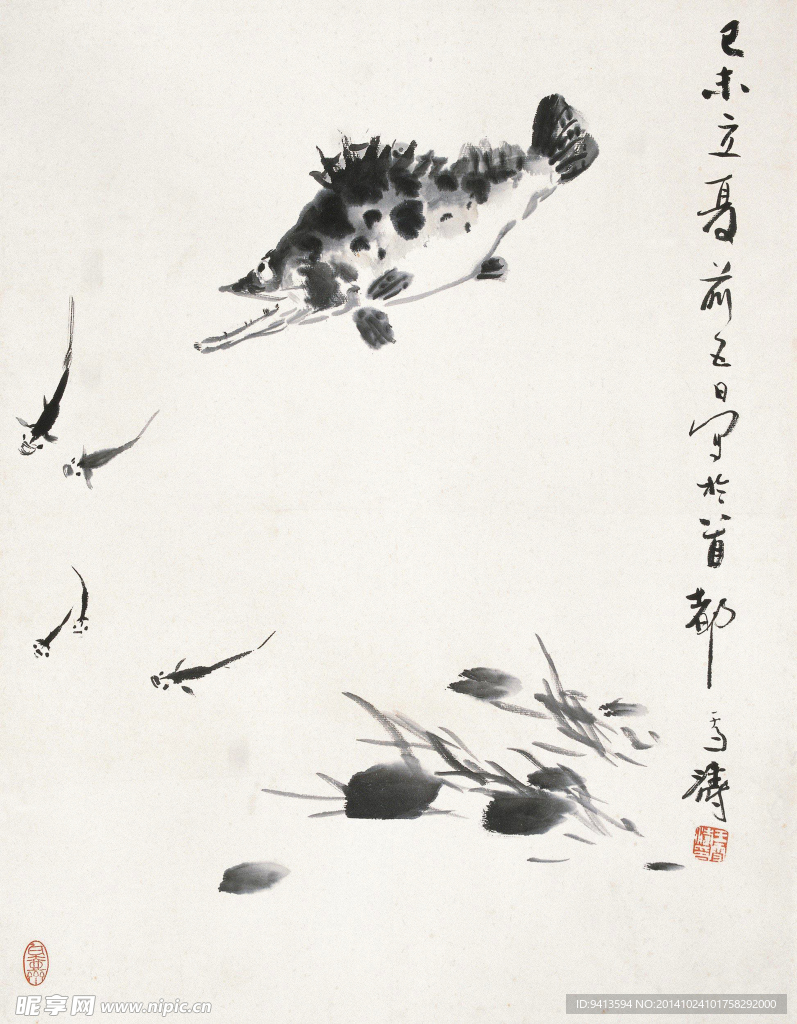 己未立夏前五日写於首都雪涛
王雪涛印
昵享网 www.nipic.cn
ID:9413594 NO:20141024101758292000